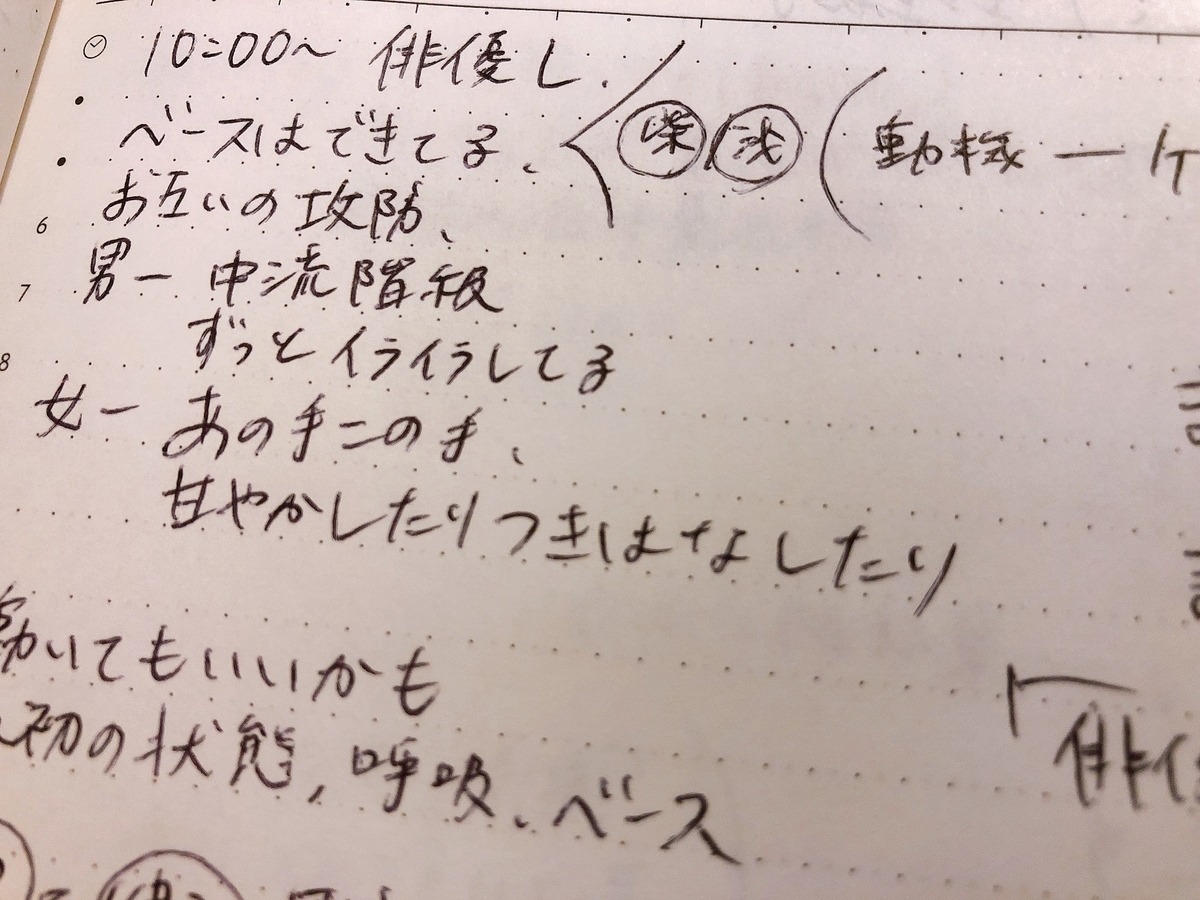 10:00〜 俳優し.
ベースはできてる、 < 柴 浅 ( 動機 ー
お互いの攻防、
6
男ー 中流階級
7
ずっとイライラしてる
8
女ー あの手この手、
甘やかしたりつきはなしたり
動いてもいいかも
初の状態, 呼吸、ベース
俳優